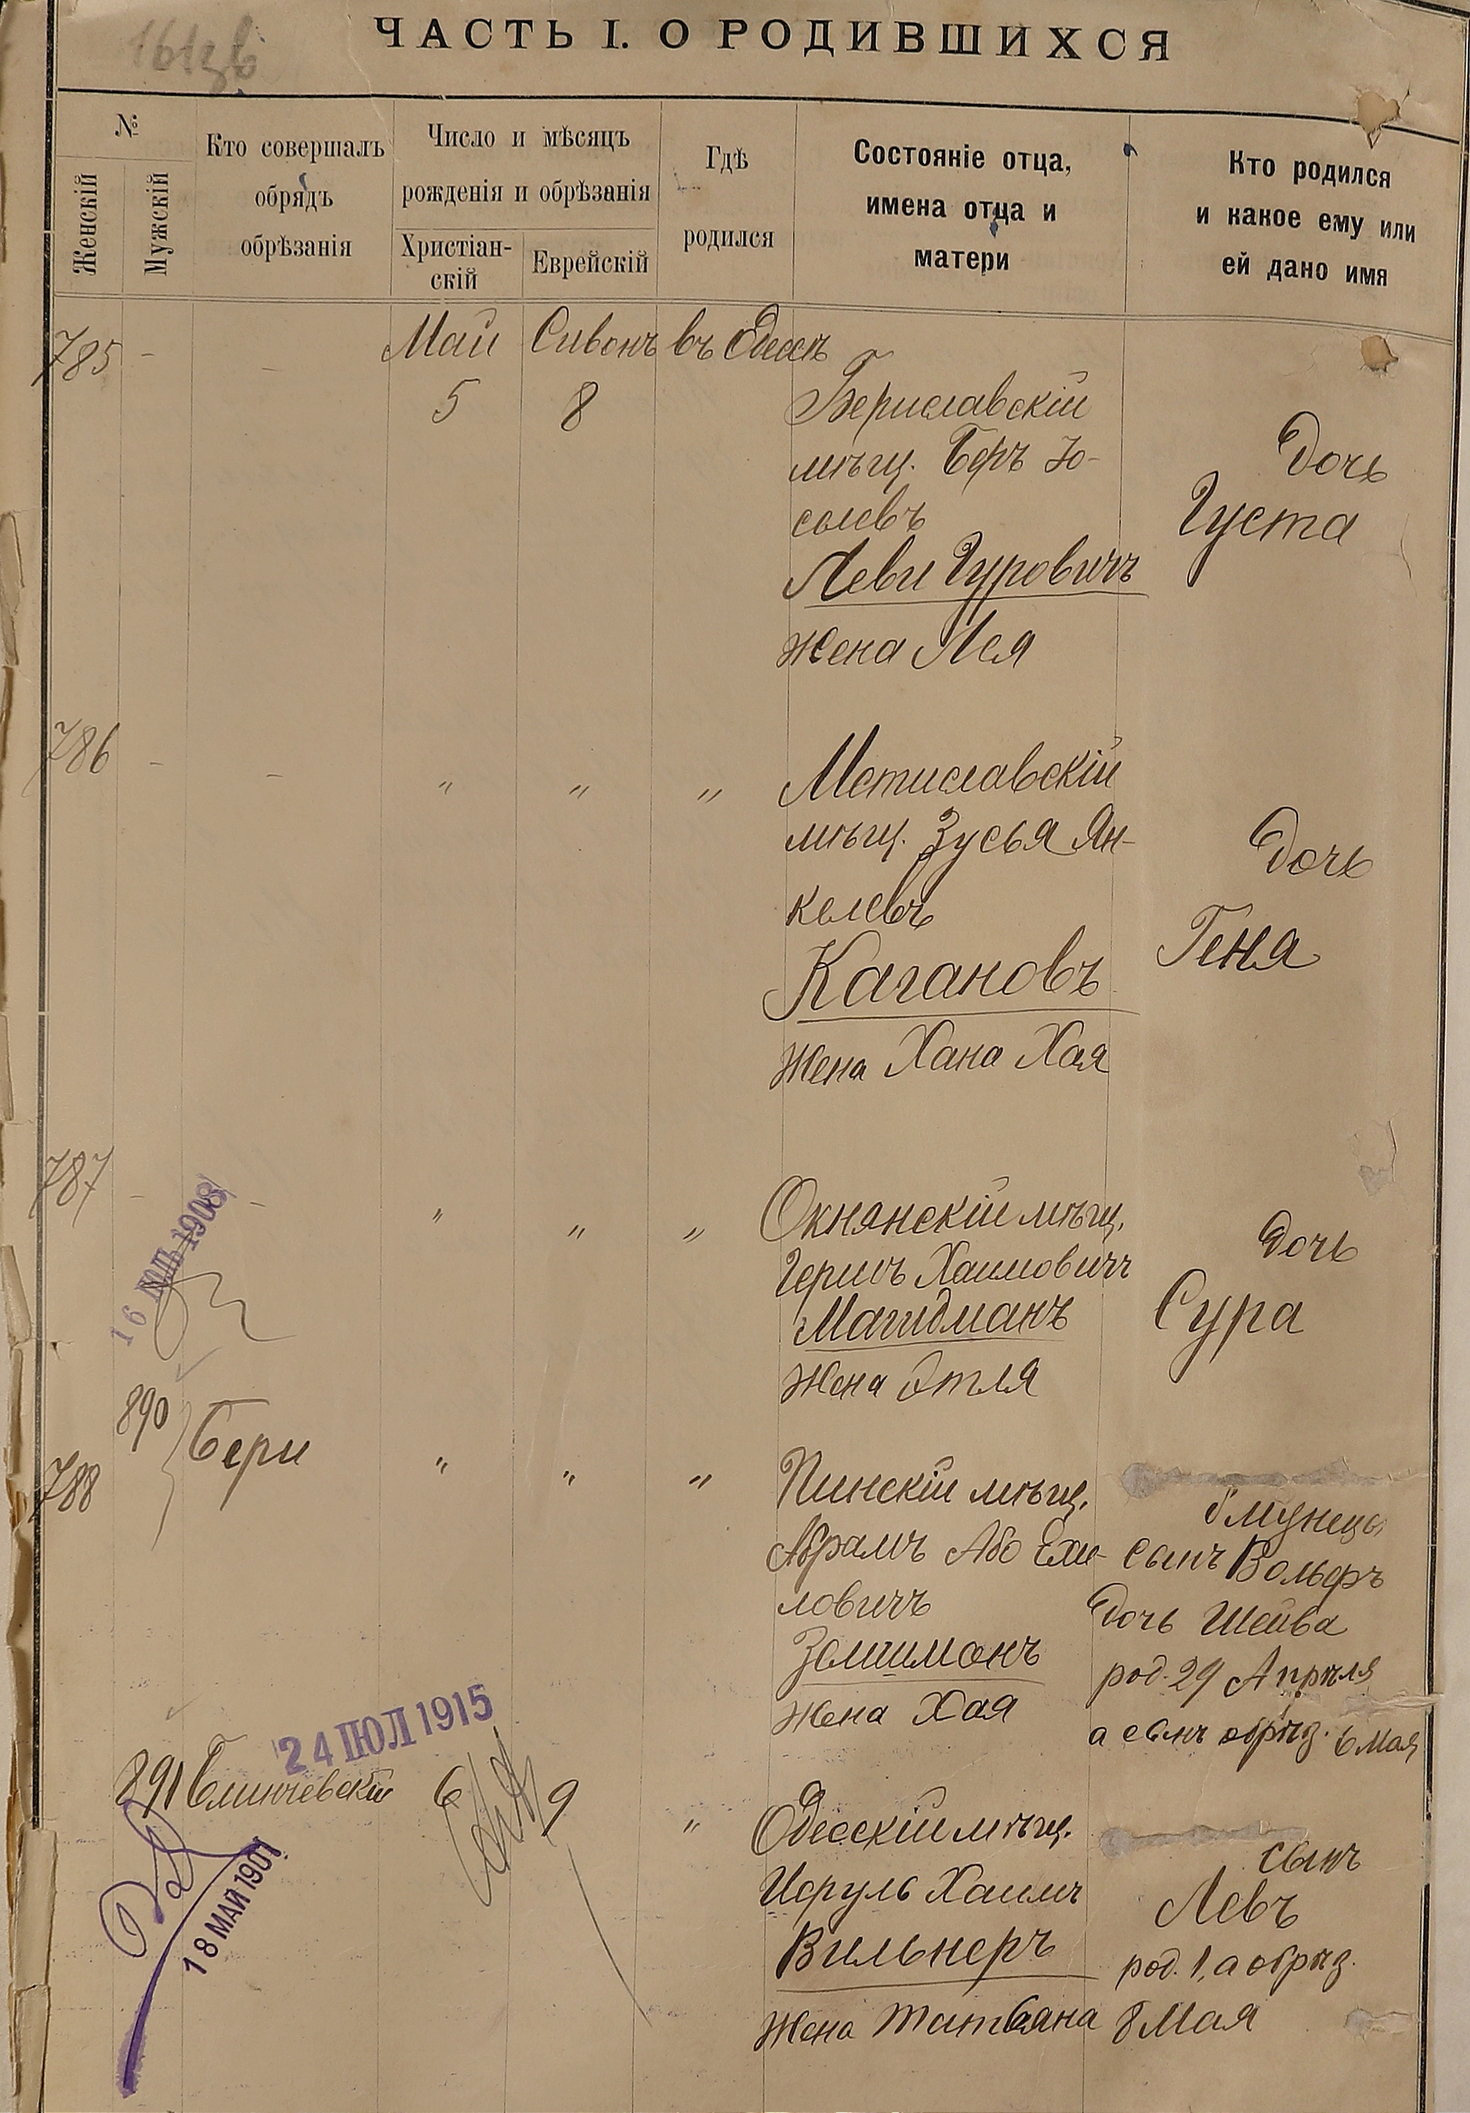 ЧАСТЬ I. О РОДИВШИХСЯ
№
Женскій
Мужскій
Кто совершалъ
обрядъ
обрѣзанія
Число и мѣсяцъ
рожденія и обрѣзанія
Христіан-
скій
Еврейскій
Гдѣ
родился
Состояніе отца,
имена отца и
матери
Кто родился
и какое ему или
ей дано имя
785 - - Май Сивонъ въ Одессѣ
5 8
Бериславскій
мѣщ. Беръ Іо-
селевъ
Леви Гуровичъ
жена Лея
Дочь
Густа
786 - - " " "
Мстиславскій
мѣщ. Зусья Ян-
келевъ
Кагановъ
жена Хана Хая
Дочь
Геня
787 - - " " "
Окнянскій мѣщ.
Гершъ Хаимовичъ
Магидманъ
жена Этля
Дочь
Сура
16 ІЮЛЬ 1908
890
788
Бери " " "
Пинскій мѣщ.
Абрамъ Або Ехи-
ловичъ
жена Хая
сынъ Вольфъ
дочь Шейва
род. 29 Апрѣля
а сынъ обрѣз. 6 Мая
24 ІЮЛ 1915
891 Блинчевскій 6 9 "
18 МАЙ 1901
Одесскій мѣщ.
Исруль Хаимъ
Вильнеръ
жена Татьяна
сынъ
Левъ
род. 1, а обрѣз.
8 Мая